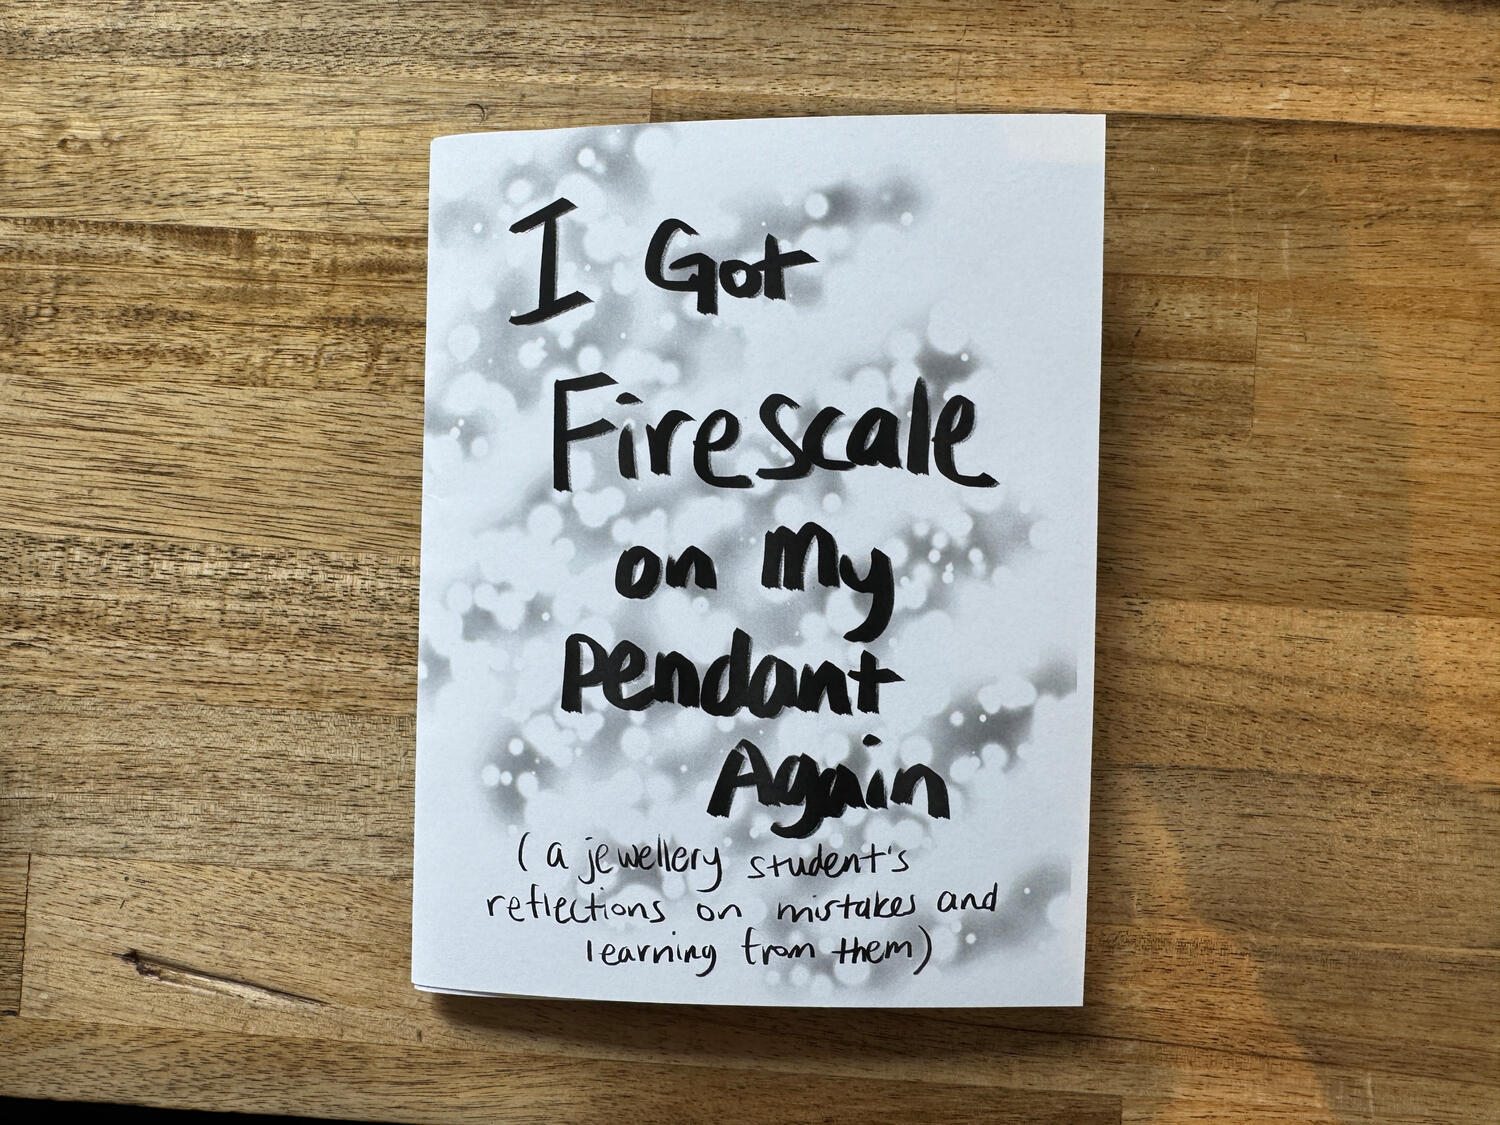 I Got
Firescale
on My
Pendant
Again
(a jewellery student's
reflections on mistakes and
learning from them)